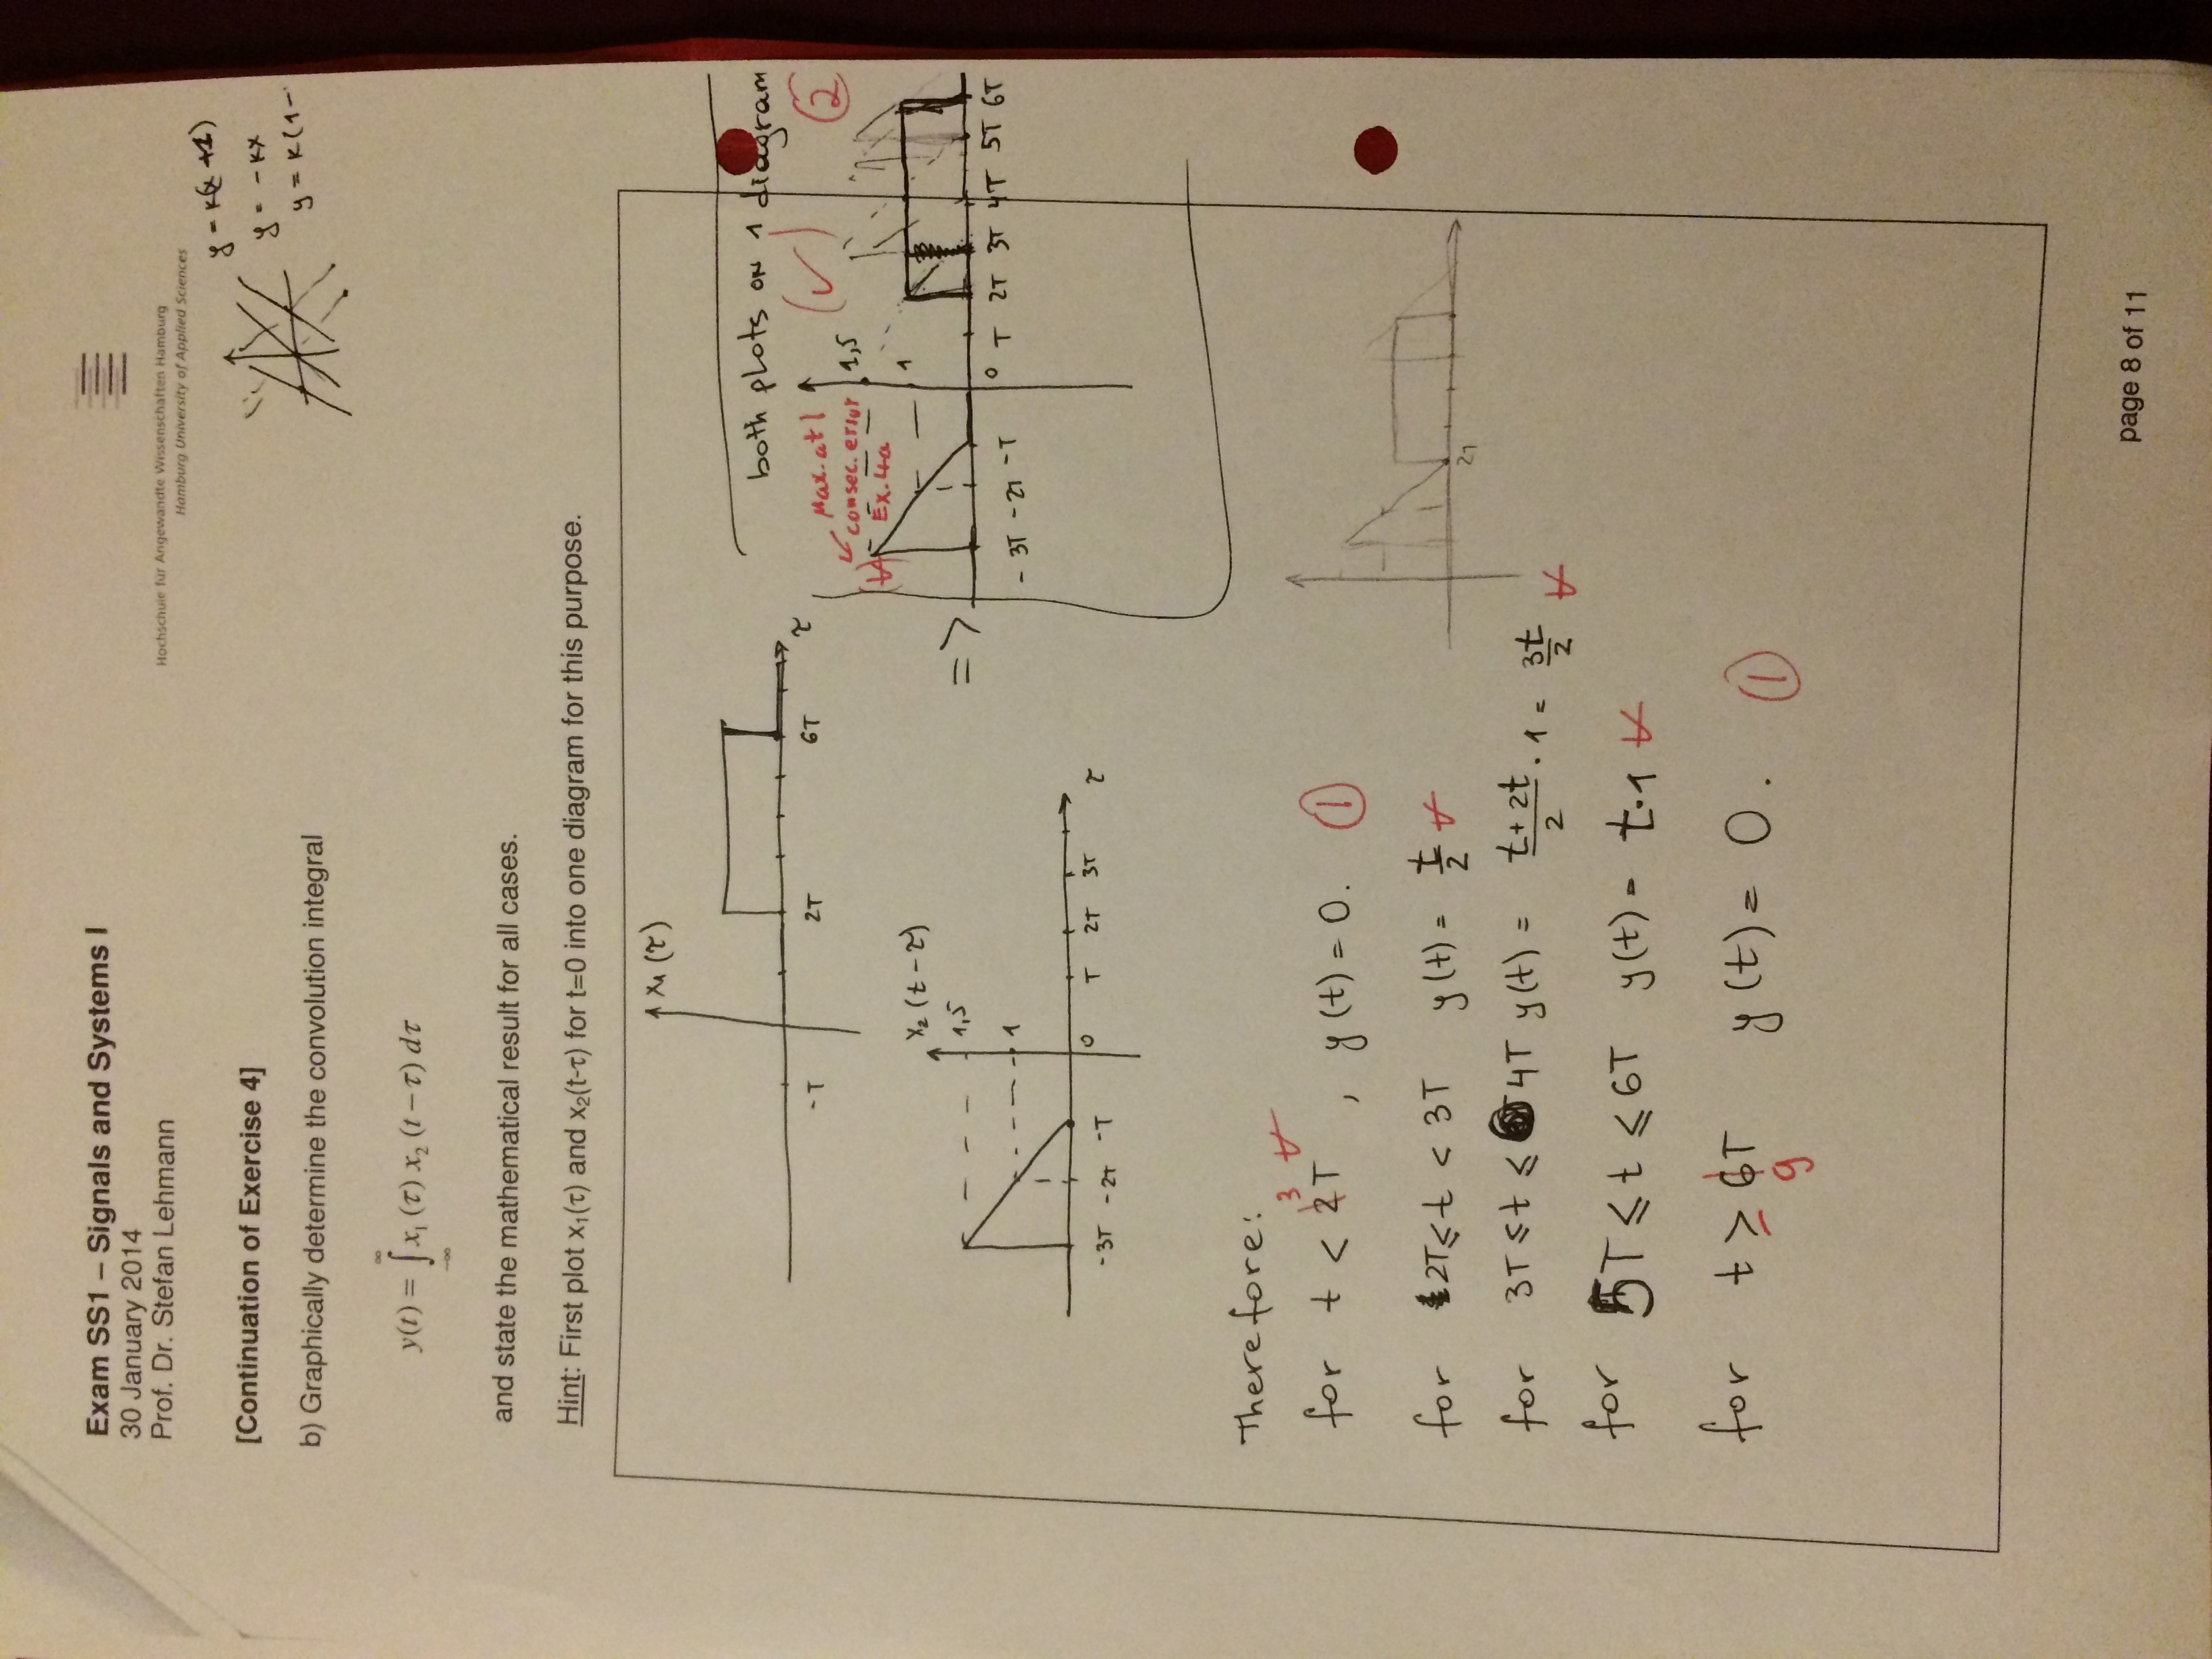 Exam SS1 – Signals and Systems I
30 January 2014
Prof. Dr. Stefan Lehmann
Hochschule für Angewandte Wissenschaften Hamburg
Hamburg University of Applied Sciences
y = k(x+1)
y = -kx
y = k(1-
[Continuation of Exercise 4]
b) Graphically determine the convolution integral
y(t) = ∫_{-∞}^{∞} x₁(τ) x₂(t-τ) dτ
and state the mathematical result for all cases.
Hint: First plot x₁(τ) and x₂(t-τ) for t=0 into one diagram for this purpose.
x₁(τ)
-T 2T 6T τ
both plots on 1 diagram
2
Max. at 1
consec. error
Ex. 4a
1,5
1
-3T -2T -T 0 T 2T 3T 4T 5T 6T
=>
x₂(t-τ)
1,5
1
-3T -2T -T 0 T 2T 3T τ
Therefore:
3
for t < 2T , y(t) = 0. 1
for 2T ≤ t < 3T y(t) = t/2
for 3T ≤ t ≤ 4T y(t) = (t+2t)/2 · 1 = 3t/2
for 5T ≤ t ≤ 6T y(t) = t·1
for t ≥ 6T y(t) = 0. 1
9
2T
page 8 of 11